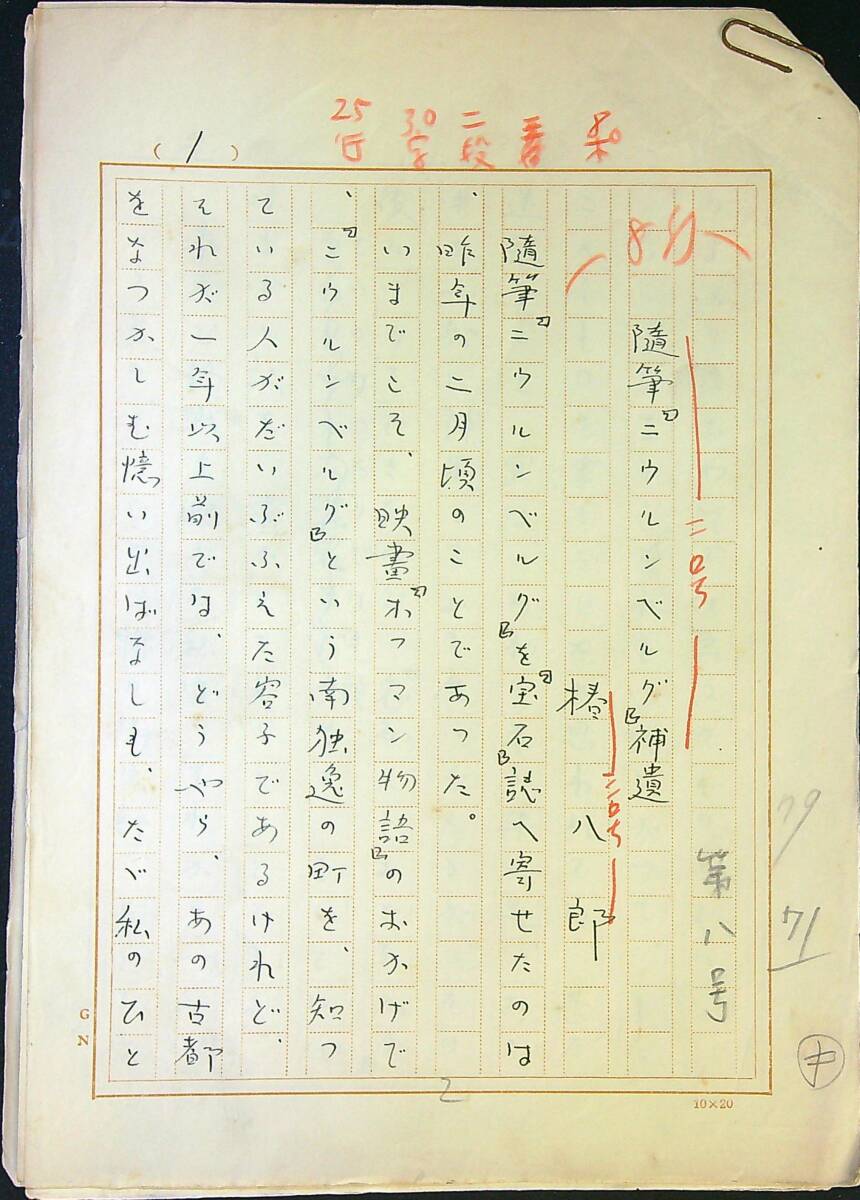 25行 30字 二段
(1)
8ポ
二号
第八号
79
71
隨筆『ニウルンベルグ』補遺
二号
椿八郎
隨筆『ニウルンベルグ』を『宝石』誌へ寄せたのは
、昨年の二月頃のことであつた。
いまでこそ、映畫『ホフマン物語』のおかげで
、『ニウルンベルグ』という南独逸の町を、知つ
ている人がだいぶふえた容子であるけれど、
それが一年以上前では、どうやら、あの古都
をなつかしむ憶い出ばなしも、たゞ私のひと
2
GN
10×20